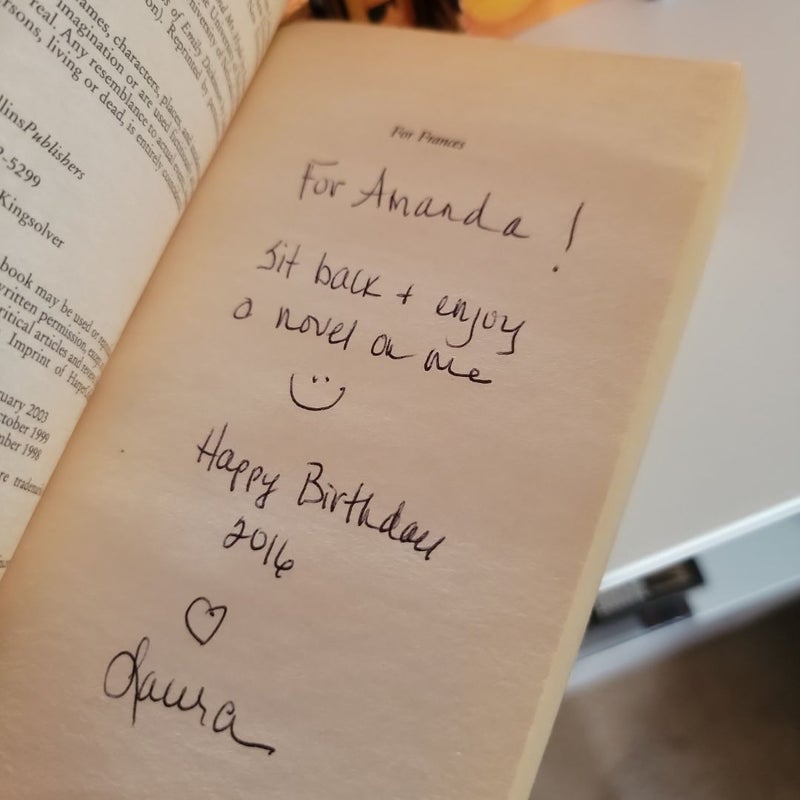 names, characters, places, and
imagination or are used fictitiously
real. Any resemblance to actual
persons, living or dead, is entirely
of Emily
Reprinted by
llinsPublishers
-5299
Kingsolver
book may be used or
written permission,
critical articles and
Imprint of
uary 2003
ctober 1999
mber 1998
re
For Frances
For Amanda!
Sit back + enjoy
a novel on me
Happy Birthday
2016
Laura